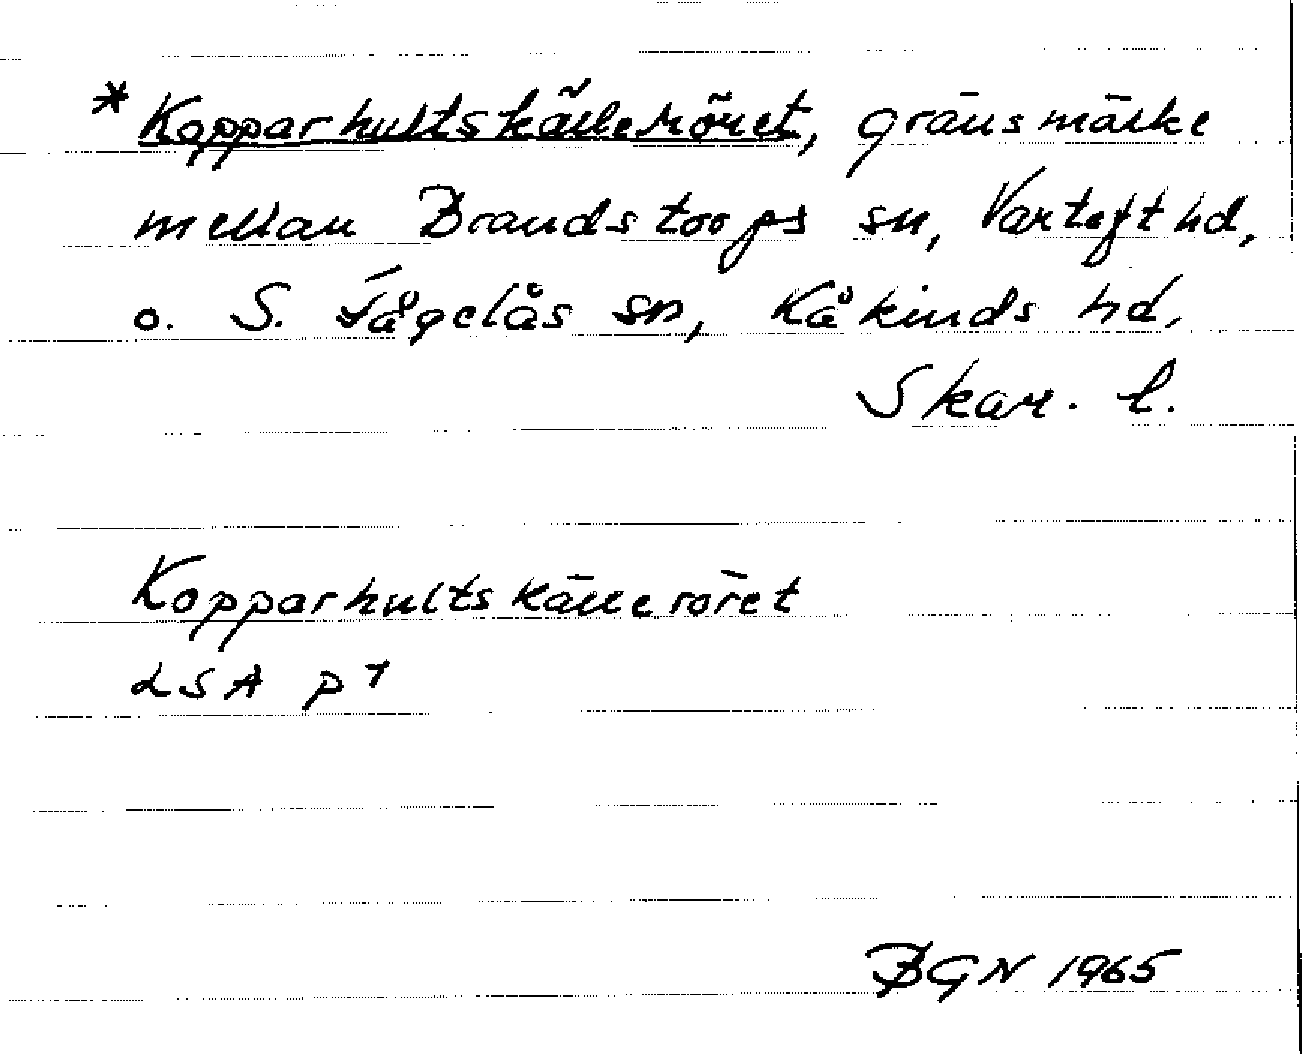 *Kopparhultskälleröret, gränsmärke
mellan Brandstorps sn, Vartoft hd,
o. S. Fågelås sn, Kåkinds hd,
Skar. l.
Kopparhultskälleröret
LSA p 1
BGN 1965